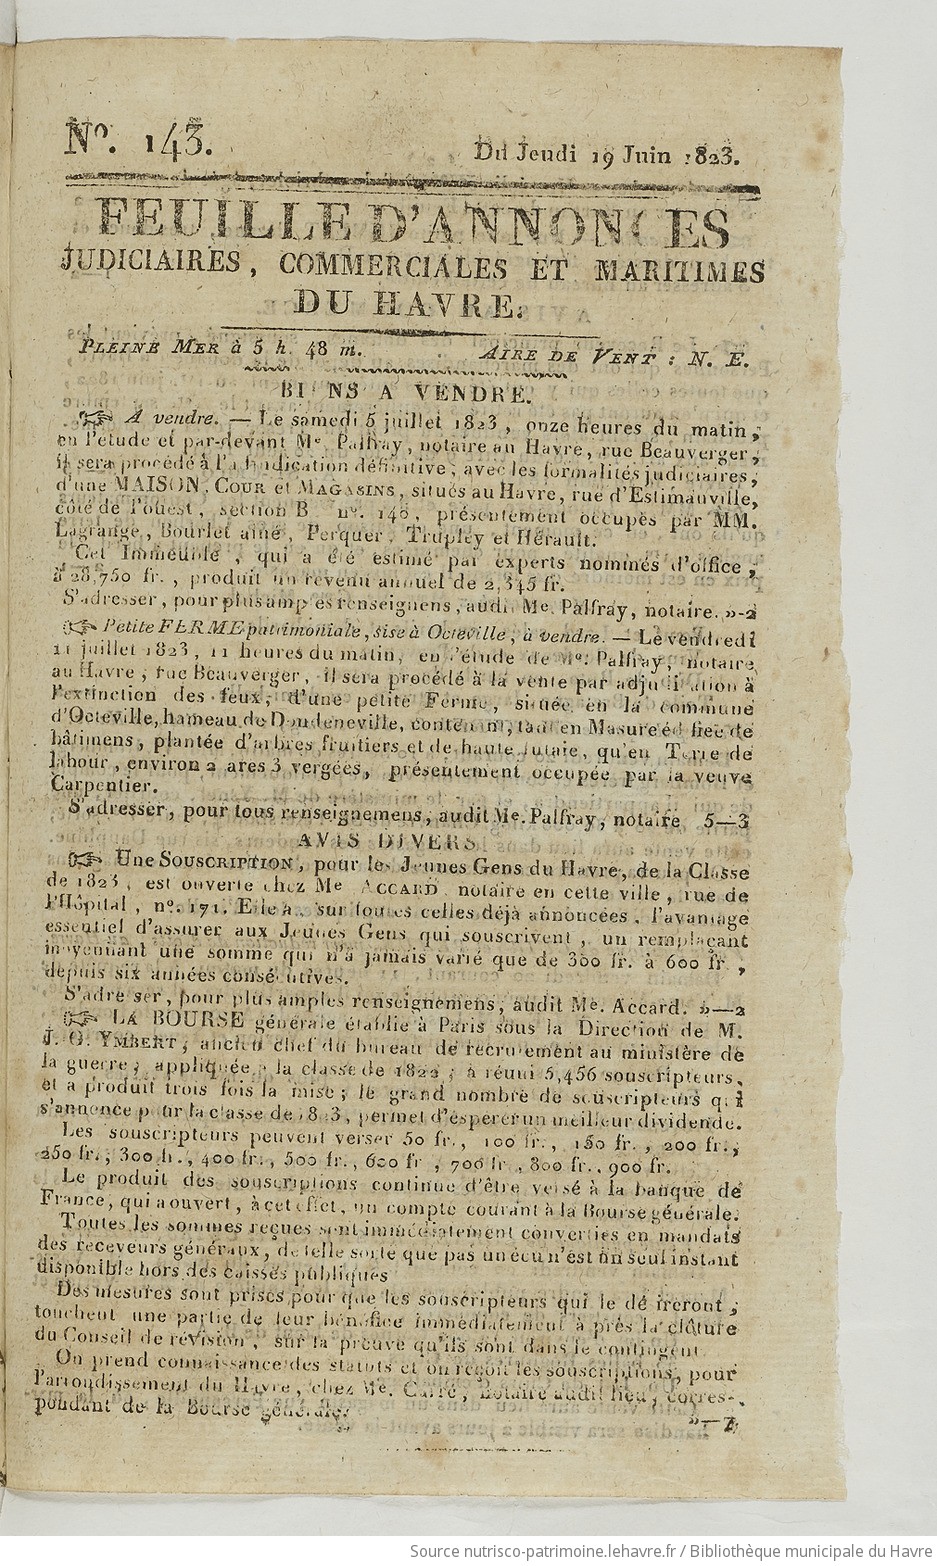 Nº. 143.
Du Jeudi 19 Juin 1823.
FEUILLE D'ANNONCES
JUDICIAIRES, COMMERCIALES ET MARITIMES
DU HAVRE.
PLEINE MER à 5 h. 48 m.
AIRE DE VENT : N. E.
BIENS A VENDRE.
A vendre. — Le samedi 5 juillet 1823, onze heures du matin,
en l'étude et par-devant Me. Palfray, notaire au Havre, rue Beauverger,
il sera procédé à l'adjudication définitive, avec les formalités judiciaires,
d'une MAISON, COUR et MAGASINS, situés au Havre, rue d'Estimauville,
côté de l'ouest, section B nº. 146, présentement occupés par MM.
Lagrange, Bourlet aîné, Perquer, Trupley et Hérault.
Cet Immeuble, qui a été estimé par experts nommés d'office,
à 28,750 fr., produit un revenu annuel de 2,345 fr.
S'adresser, pour plus amples renseignens, audit Me. Palfray, notaire. »-2
Petite FERME patrimoniale, sise à Octeville, à vendre. — Le vendredi
11 juillet 1823, 11 heures du matin, en l'étude de Me. Palfray, notaire
au Havre, rue Beauverger, il sera procédé à la vente par adjudication à
l'extinction des feux, d'une petite Ferme, située en la commune
d'Octeville, hameau de Dondeneville, contenant, tant en Masure édifiée de
bâtimens, plantée d'arbres fruitiers et de haute futaie, qu'en Terre de
labour, environ 2 ares 3 vergées, présentement occupée par la veuve
Carpentier.
S'adresser, pour tous renseignemens, audit Me. Palfray, notaire 5—3
AVIS DIVERS
Une SOUSCRIPTION, pour les Jeunes Gens du Havre, de la Classe
de 1823, est ouverte chez Me ACCARD, notaire en cette ville, rue de
l'Hôpital, nº. 171. Elle a, sur toutes celles déjà annoncées, l'avantage
essentiel d'assurer aux Jeunes Gens qui souscrivent, un remplaçant
moyennant une somme qui n'a jamais varié que de 300 fr. à 600 fr,
depuis six années consécutives.
S'adresser, pour plus amples renseignemens, audit Me. Accard. »—2
LA BOURSE générale établie à Paris sous la Direction de M.
J. G. YMBERT, ancien chef du bureau de recrutement au ministère de
la guerre, appliquée à la classe de 1822, a réuni 5,456 souscripteurs,
et a produit trois fois la mise; le grand nombre de souscripteurs qui
s'annonce pour la classe de 1823, permet d'espérer un meilleur dividende.
Les souscripteurs peuvent verser 50 fr., 100 fr., 150 fr., 200 fr.,
250 fr., 300 fr., 400 fr., 500 fr., 600 fr, 700 fr, 800 fr., 900 fr.
Le produit des souscriptions continue d'être versé à la banque de
France, qui a ouvert, à cet effet, un compte courant à la Bourse générale.
Toutes les sommes reçues sont immédiatement converties en mandats
des receveurs généraux, de telle sorte que pas un écu n'est un seul instant
disponible hors des caisses publiques
Des mesures sont prises pour que les souscripteurs qui le désireront,
touchent une partie de leur bénéfice immédiatement après la clôture
du Conseil de révision, sur la preuve qu'ils sont dans le contingent
On prend connaissance des statuts et on reçoit les souscriptions, pour
l'arrondissement du Havre, chez Me. Carré, Notaire audit lieu, corres-
pondant de la Bourse générale.
»—7
Source nutrisco-patrimoine.lehavre.fr / Bibliothèque municipale du Havre